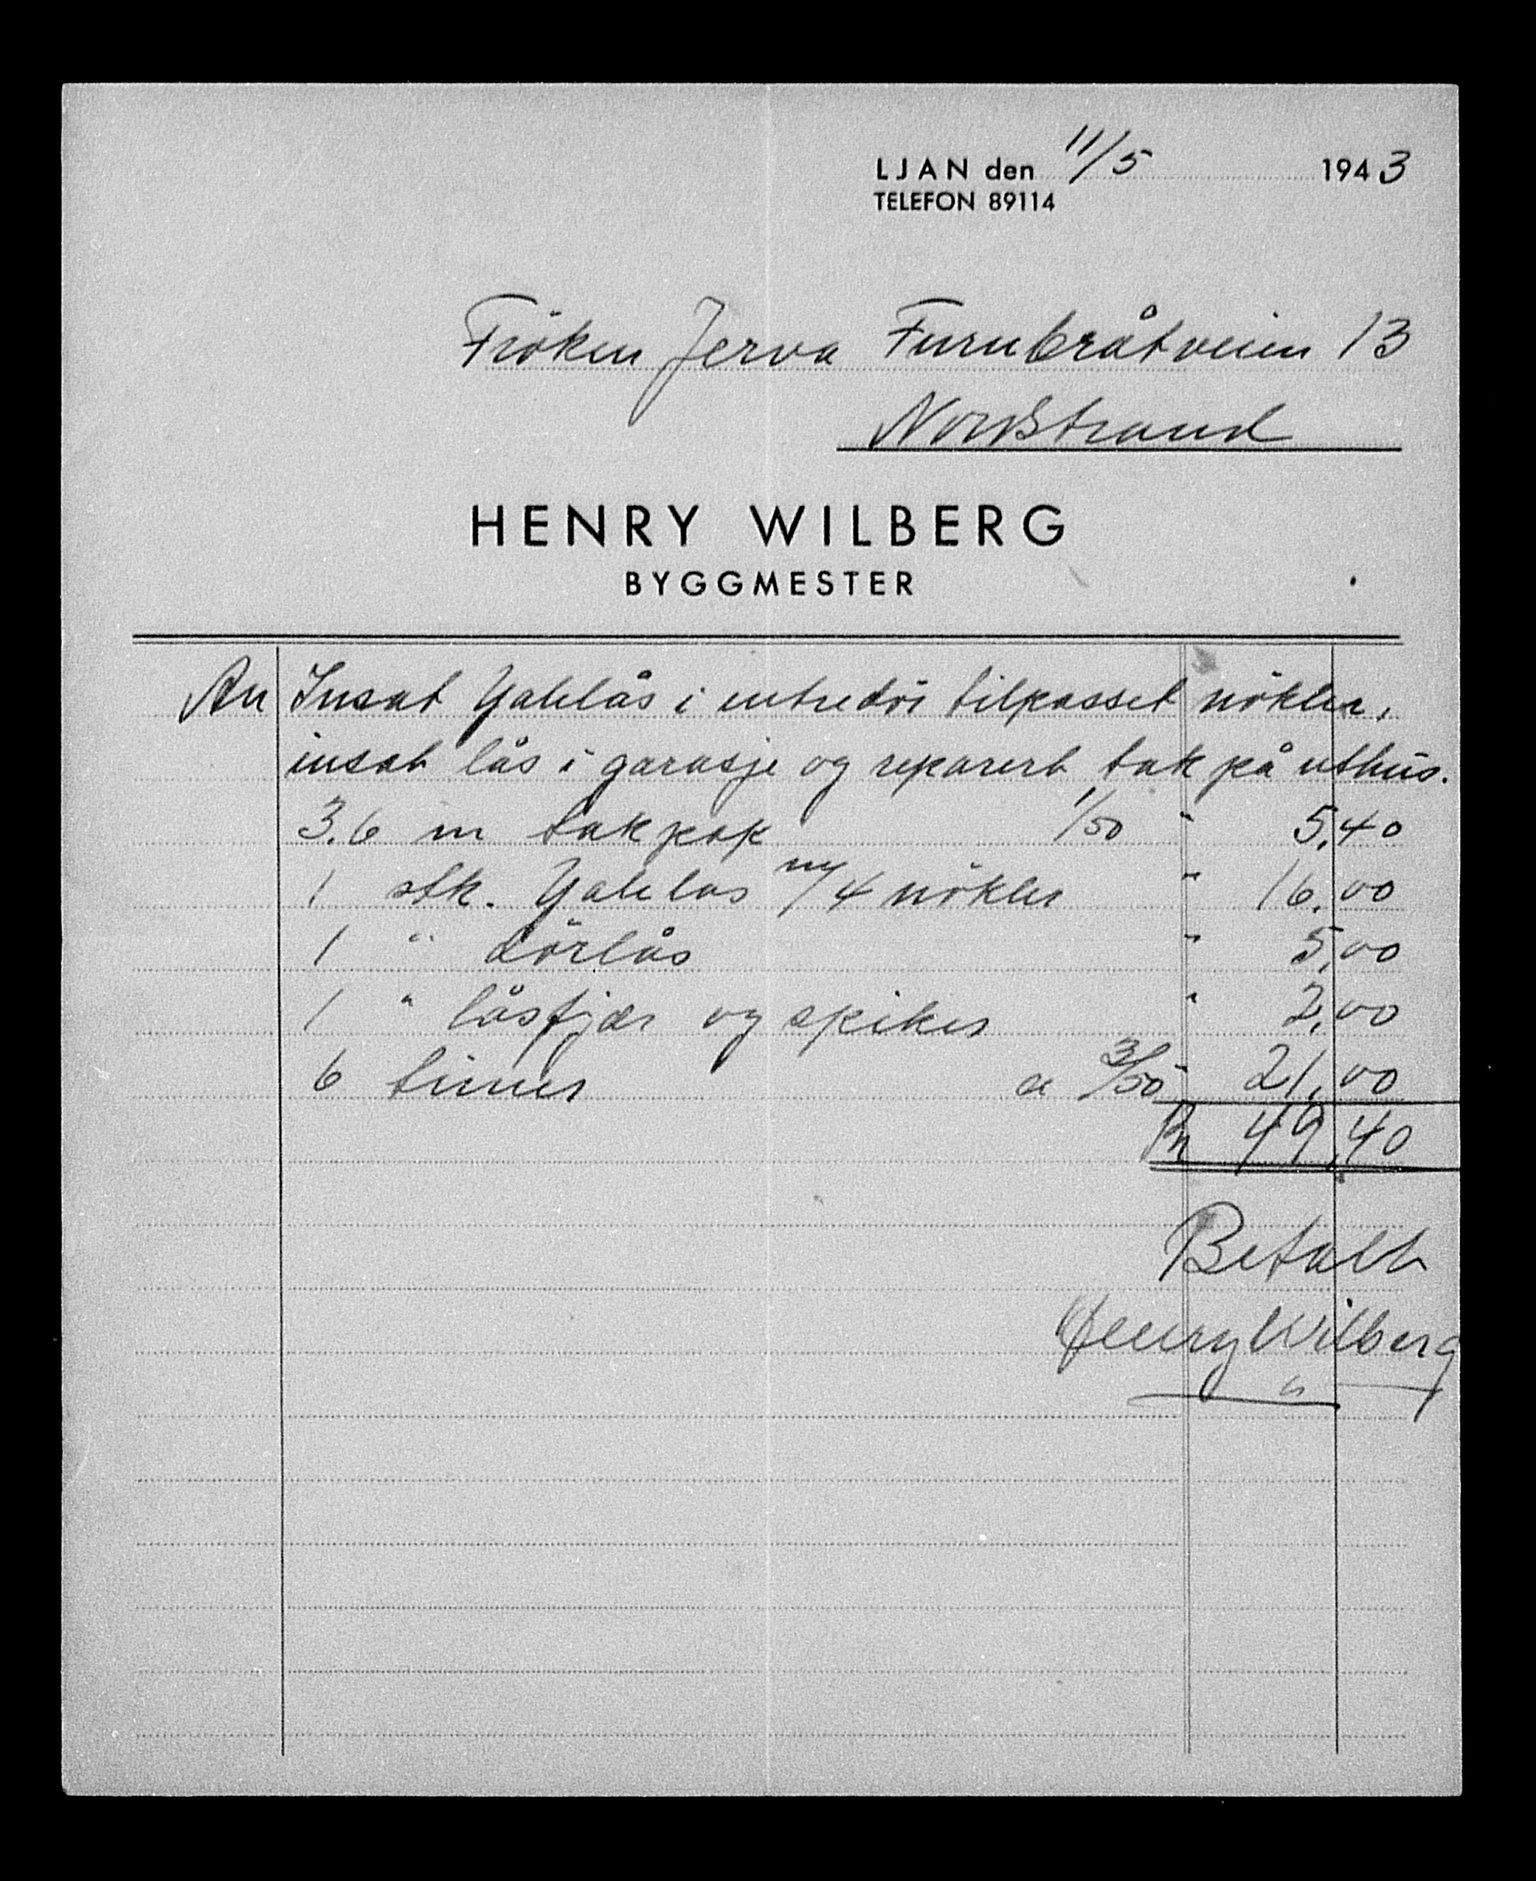 LJAN den 11/5 1943
TELEFON 89114
Fröken Jerva Furubråtveien 13
Nordstrand
HENRY WILBERG
BYGGMESTER
An Insat Yalelås i entredör tilpasset nökler,
insat lås i garasje og reparert tak på uthus.
3.6 m takpap 1/50 " 5,40
1 stk. Yalelås m/4 nökler " 16,00
1 " dörlås " 5,00
1 " låsfjær og spiker " 2,00
6 timer a 3/50 " 21,00
Kr 49,40
Betalt
Henry Wilberg